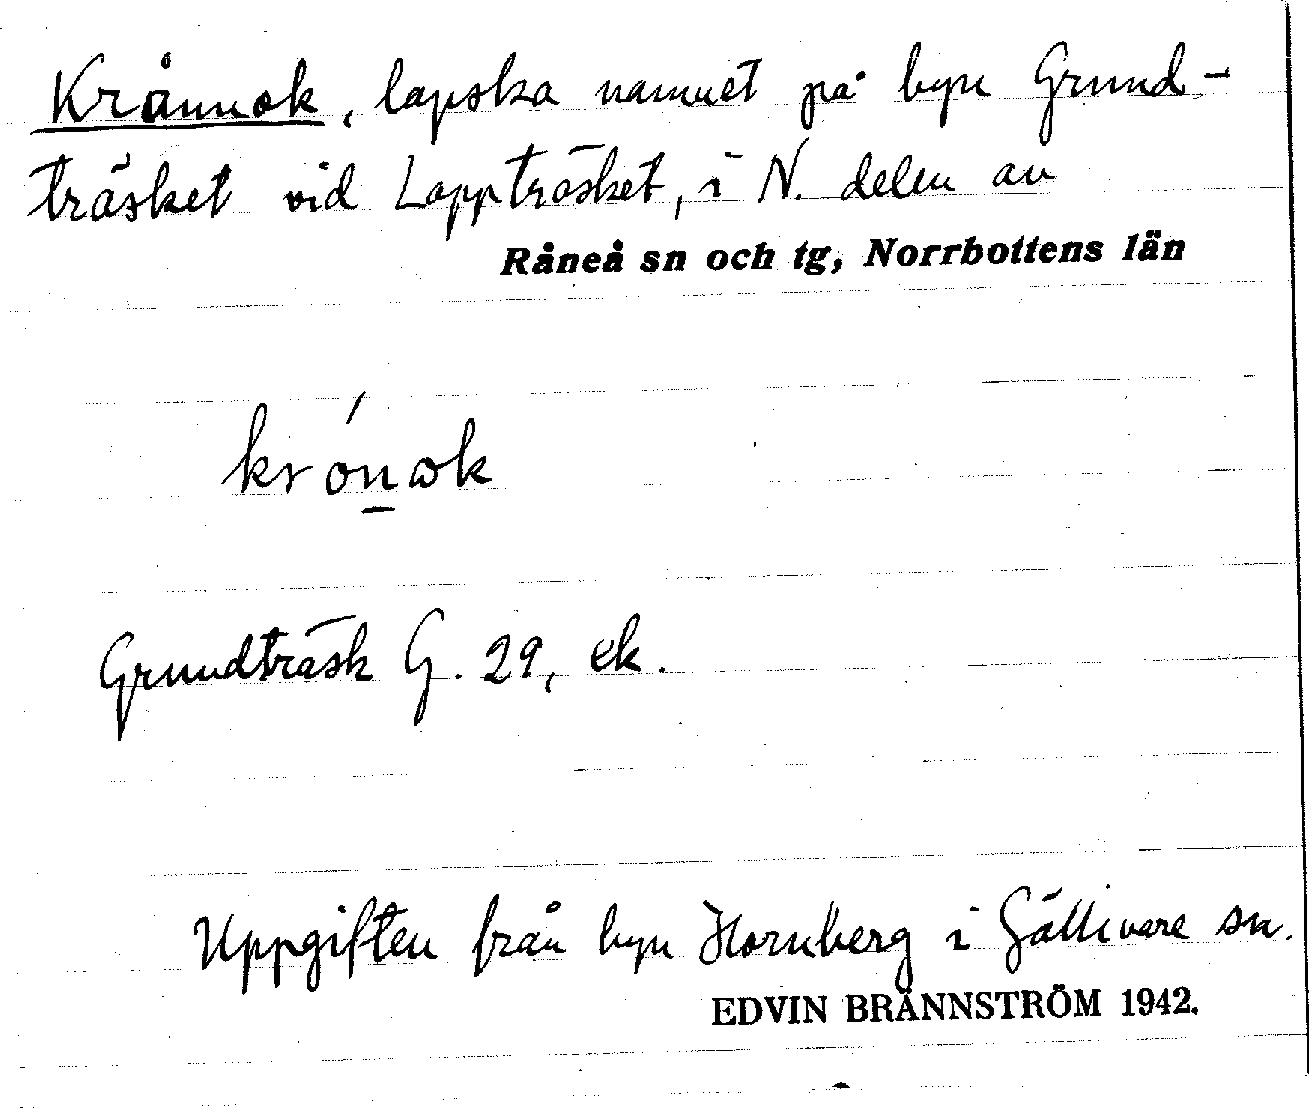 Krånnok, lapska namnet på byn Grund-
träsket vid Lappträsket, i N. delen av
Råneå sn och tg, Norrbottens län
krónωk
Grundträsk G. 29, ek.
Uppgiften från byn Hornberg i Gällivare sn.
EDVIN BRÄNNSTRÖM 1942.